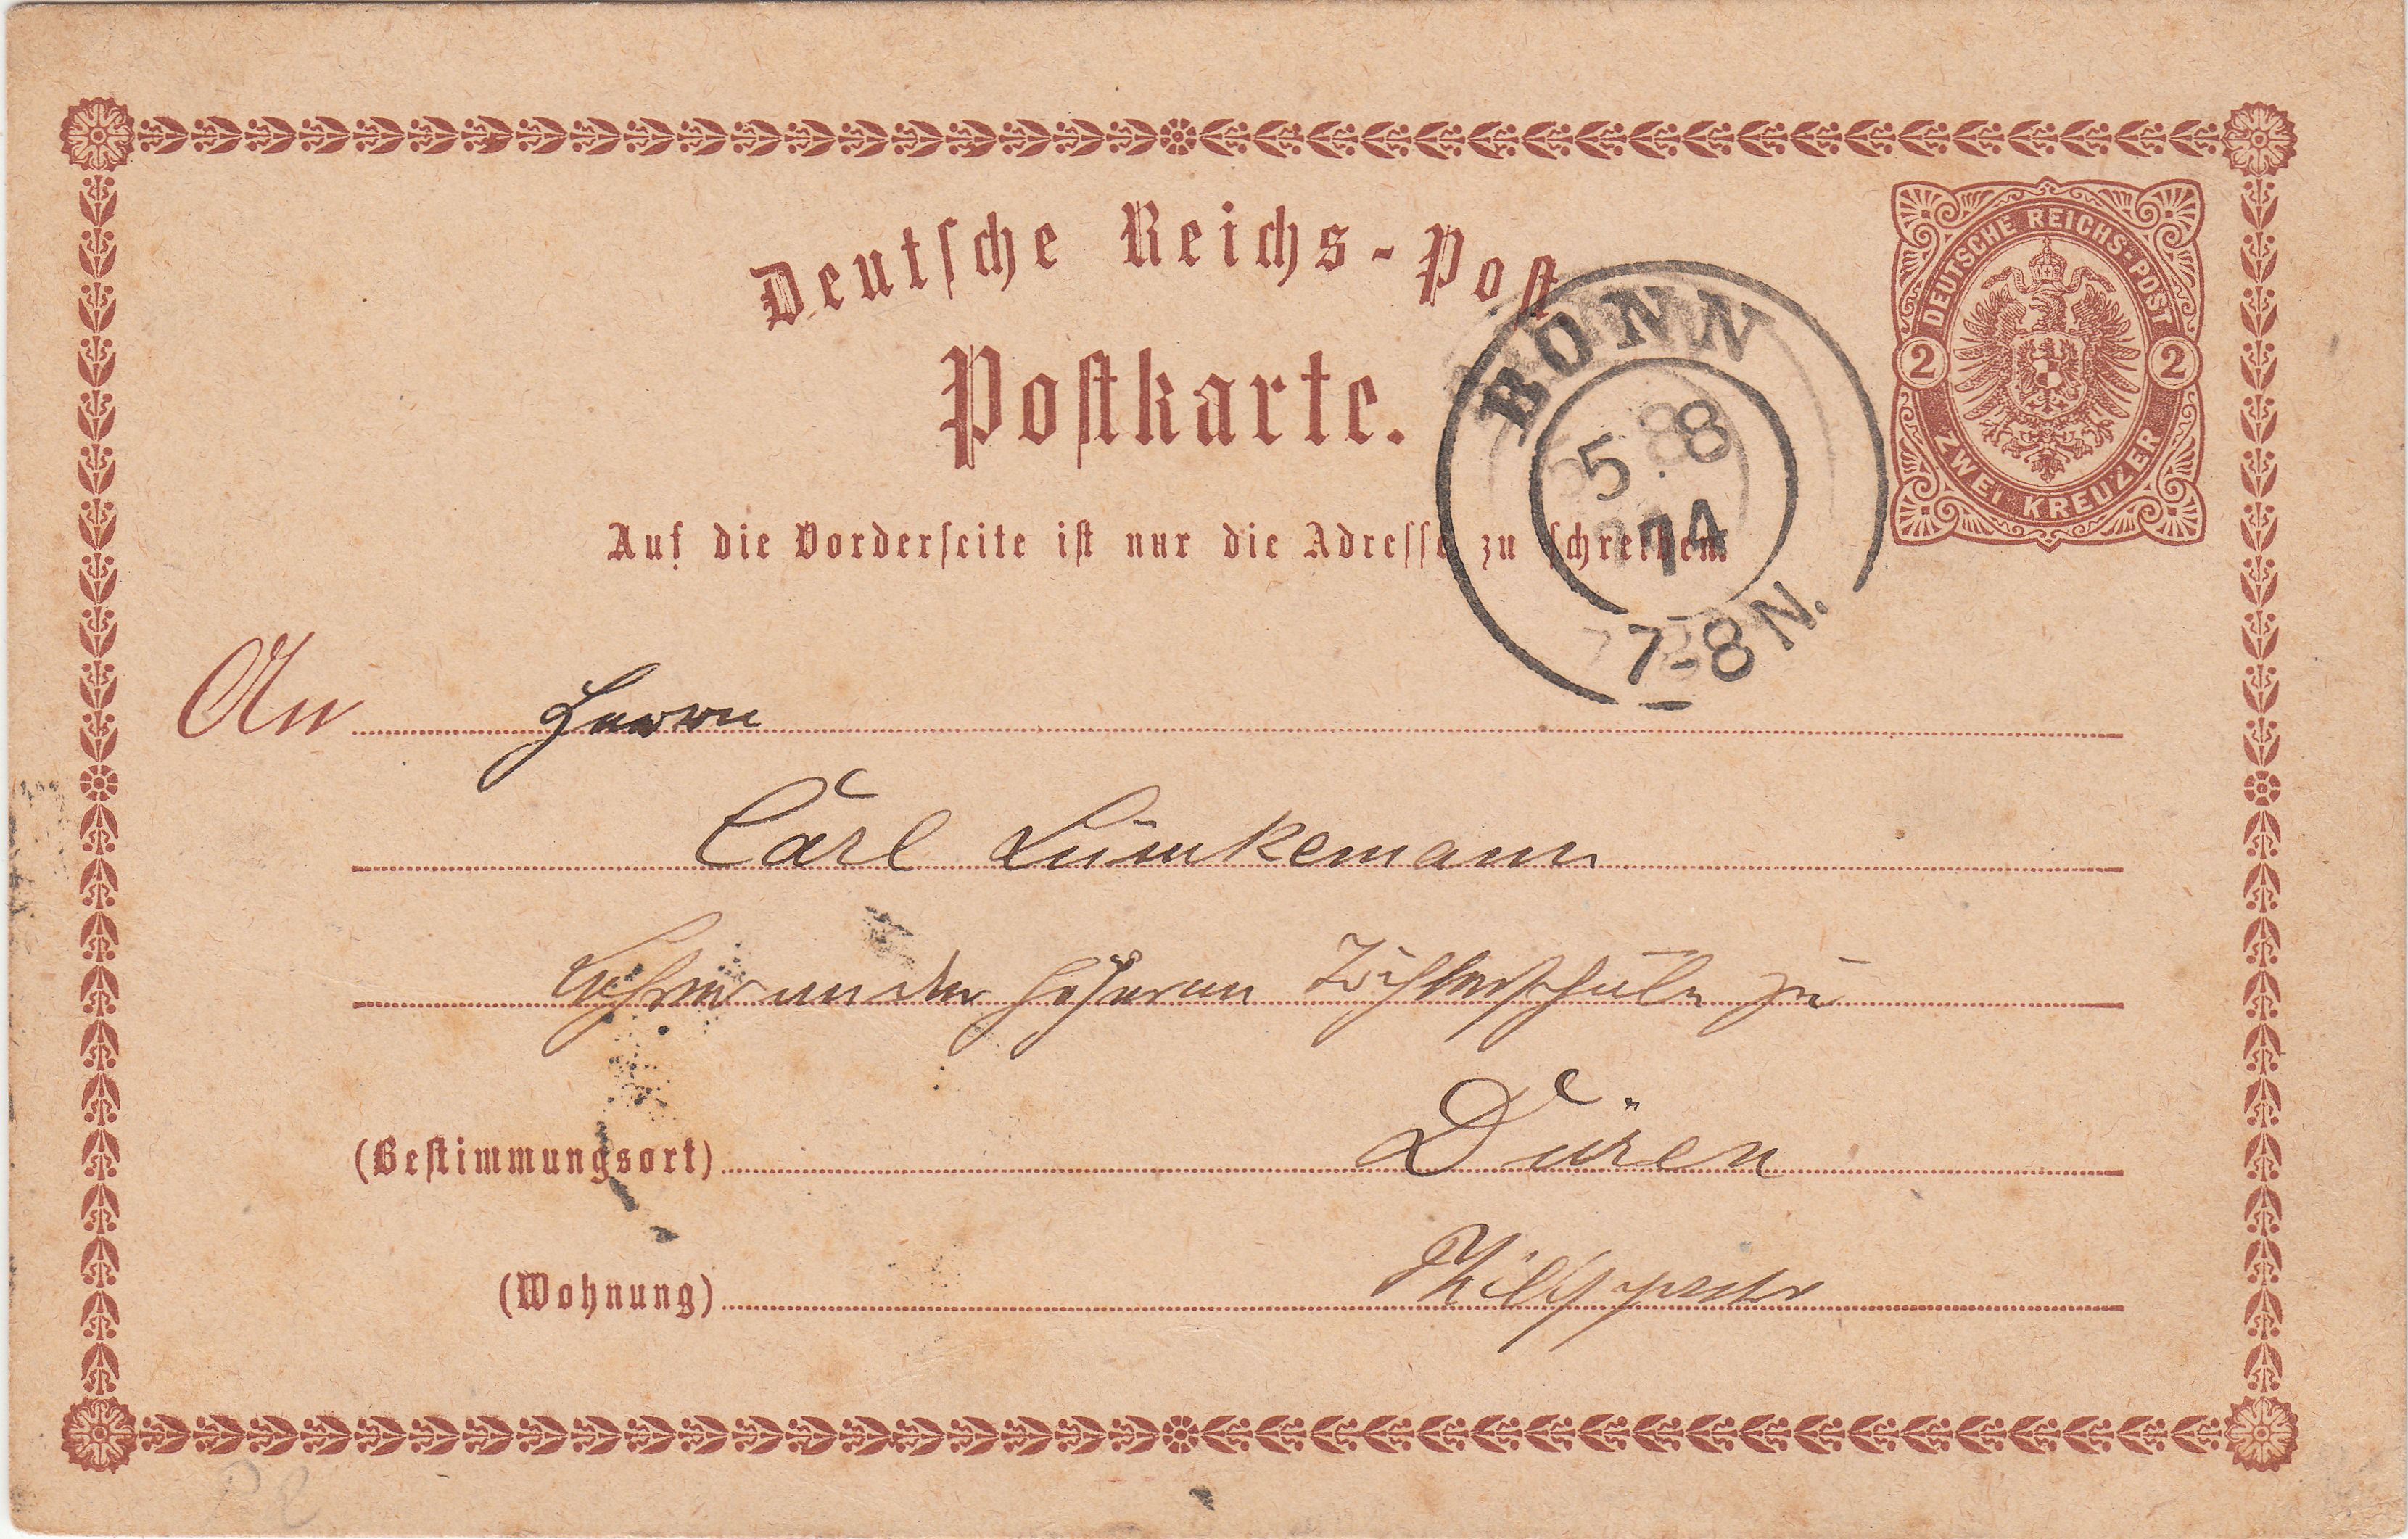 Deutsche Reichs-Post
DEUTSCHE REICHS-POST
2 2
ZWEI KREUZER
Postkarte.
BONN
5. 8
74
7-8 N.
Auf die Vorderseite ist nur die Adresse zu schreiben.
An Herrn
Carl Lünkemann
Lehrer an der höheren Töchterschule zu
(Bestimmungsort) Düren
(Wohnung)